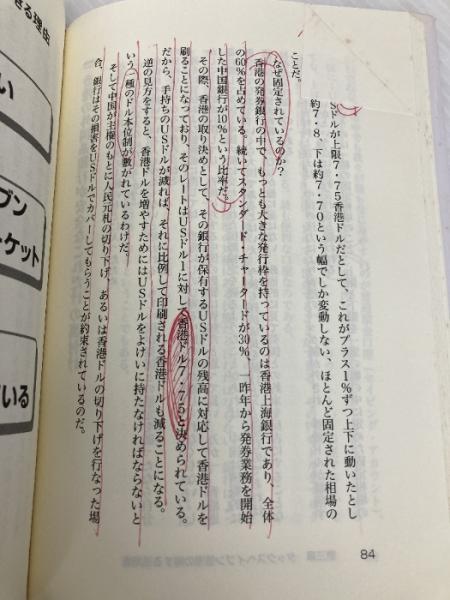 Sドルが上限7・75香港ドルだとして、これがプラス1%ずつ上下に動いたとし
約7・8、下は約7・70という幅でしか変動しない、ほとんど固定された相場の
ことだ。
なぜ固定されているのか?
香港の発券銀行の中で、もっとも大きな発行枠を持っているのは香港上海銀行であり、全体
の60%を占めている。続いてスタンダード・チャータードが30%、一昨年から発券業務を開始
した中国銀行が10%という比率だ。
その際、香港の取り決めとして、その銀行が保有するUSドルの残高に対応して香港ドルを
刷ることになっており、そのレートはUSドル1に対して香港ドル7・75と決められている。
だから、手持ちのUSドルが減れば、それに比例して印刷される香港ドルも減ることになる。
逆の見方をすると、香港ドルを増やすためにはUSドルをよけいに持たなければならないと
いう、一種のドル本位制が敷かれているわけだ。
そして中国が主権のもとに人民元札の切り下げ、あるいは香港ドルの切り下げを行なった場
合、銀行はその損害をUSドルでカバーしてもらうことが約束されているのだ。
84
きる理由
い
ブン
ーケット
いる